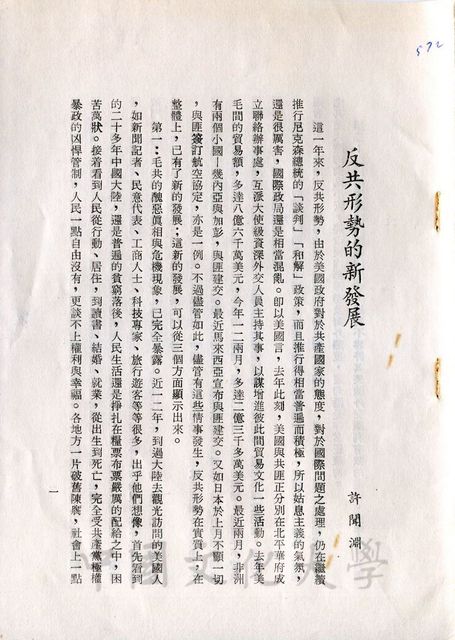 572
反共形勢的新發展
許聞淵
這一年來，反共形勢，由於美國政府對於共產國家的態度，對於國際問題之處理，仍在繼續
推行尼克森總統的「談判」「和解」政策，而且推行得相當普遍而積極，所以姑息主義的氣氛，
還是很厲害，國際政局還是相當混亂。即以美國言，去年此刻，美國與共匪正分別在北平華府成
立聯絡辦事處，互派大使級資深外交人員主持其事，以謀增進彼此間貿易文化一些活動。去年美
毛間的貿易額，多達八億六千萬美元，今年一二兩月，多達二億三千多萬美元。最近兩月，非洲
有兩個小國—幾內亞與加彭，與匪建交。最近馬來西亞宣布與匪建交。又如日本於上月不顧一切
，與匪簽訂航空協定，亦是一例。不過儘管如此，儘管有這些情事發生，反共形勢在實質上，在
整體上，已有了新的發展；這新的發展，可以從三個方面顯示出來。
第一：毛共的醜惡眞相與危機現象，已完全暴露。近一二年，到過大陸去觀光訪問的美國人
，如新聞記者、民意代表、工商人士、科技專家、旅行遊客等等很多，出乎他們想像，首先看到
的二十多年中國大陸，還是普遍的貧窮落後，人民生活還是掙扎在糧票布票嚴厲的配給之中，困
苦萬狀。接着看到人民從行動、居住，到讀書、結婚、就業，從出生到死亡，完全受共產黨極權
暴政的凶悍管制，人民一點自由沒有，更談不上權利與幸福。各地方一片破舊陳腐，社會上一點
一
中國文化大學